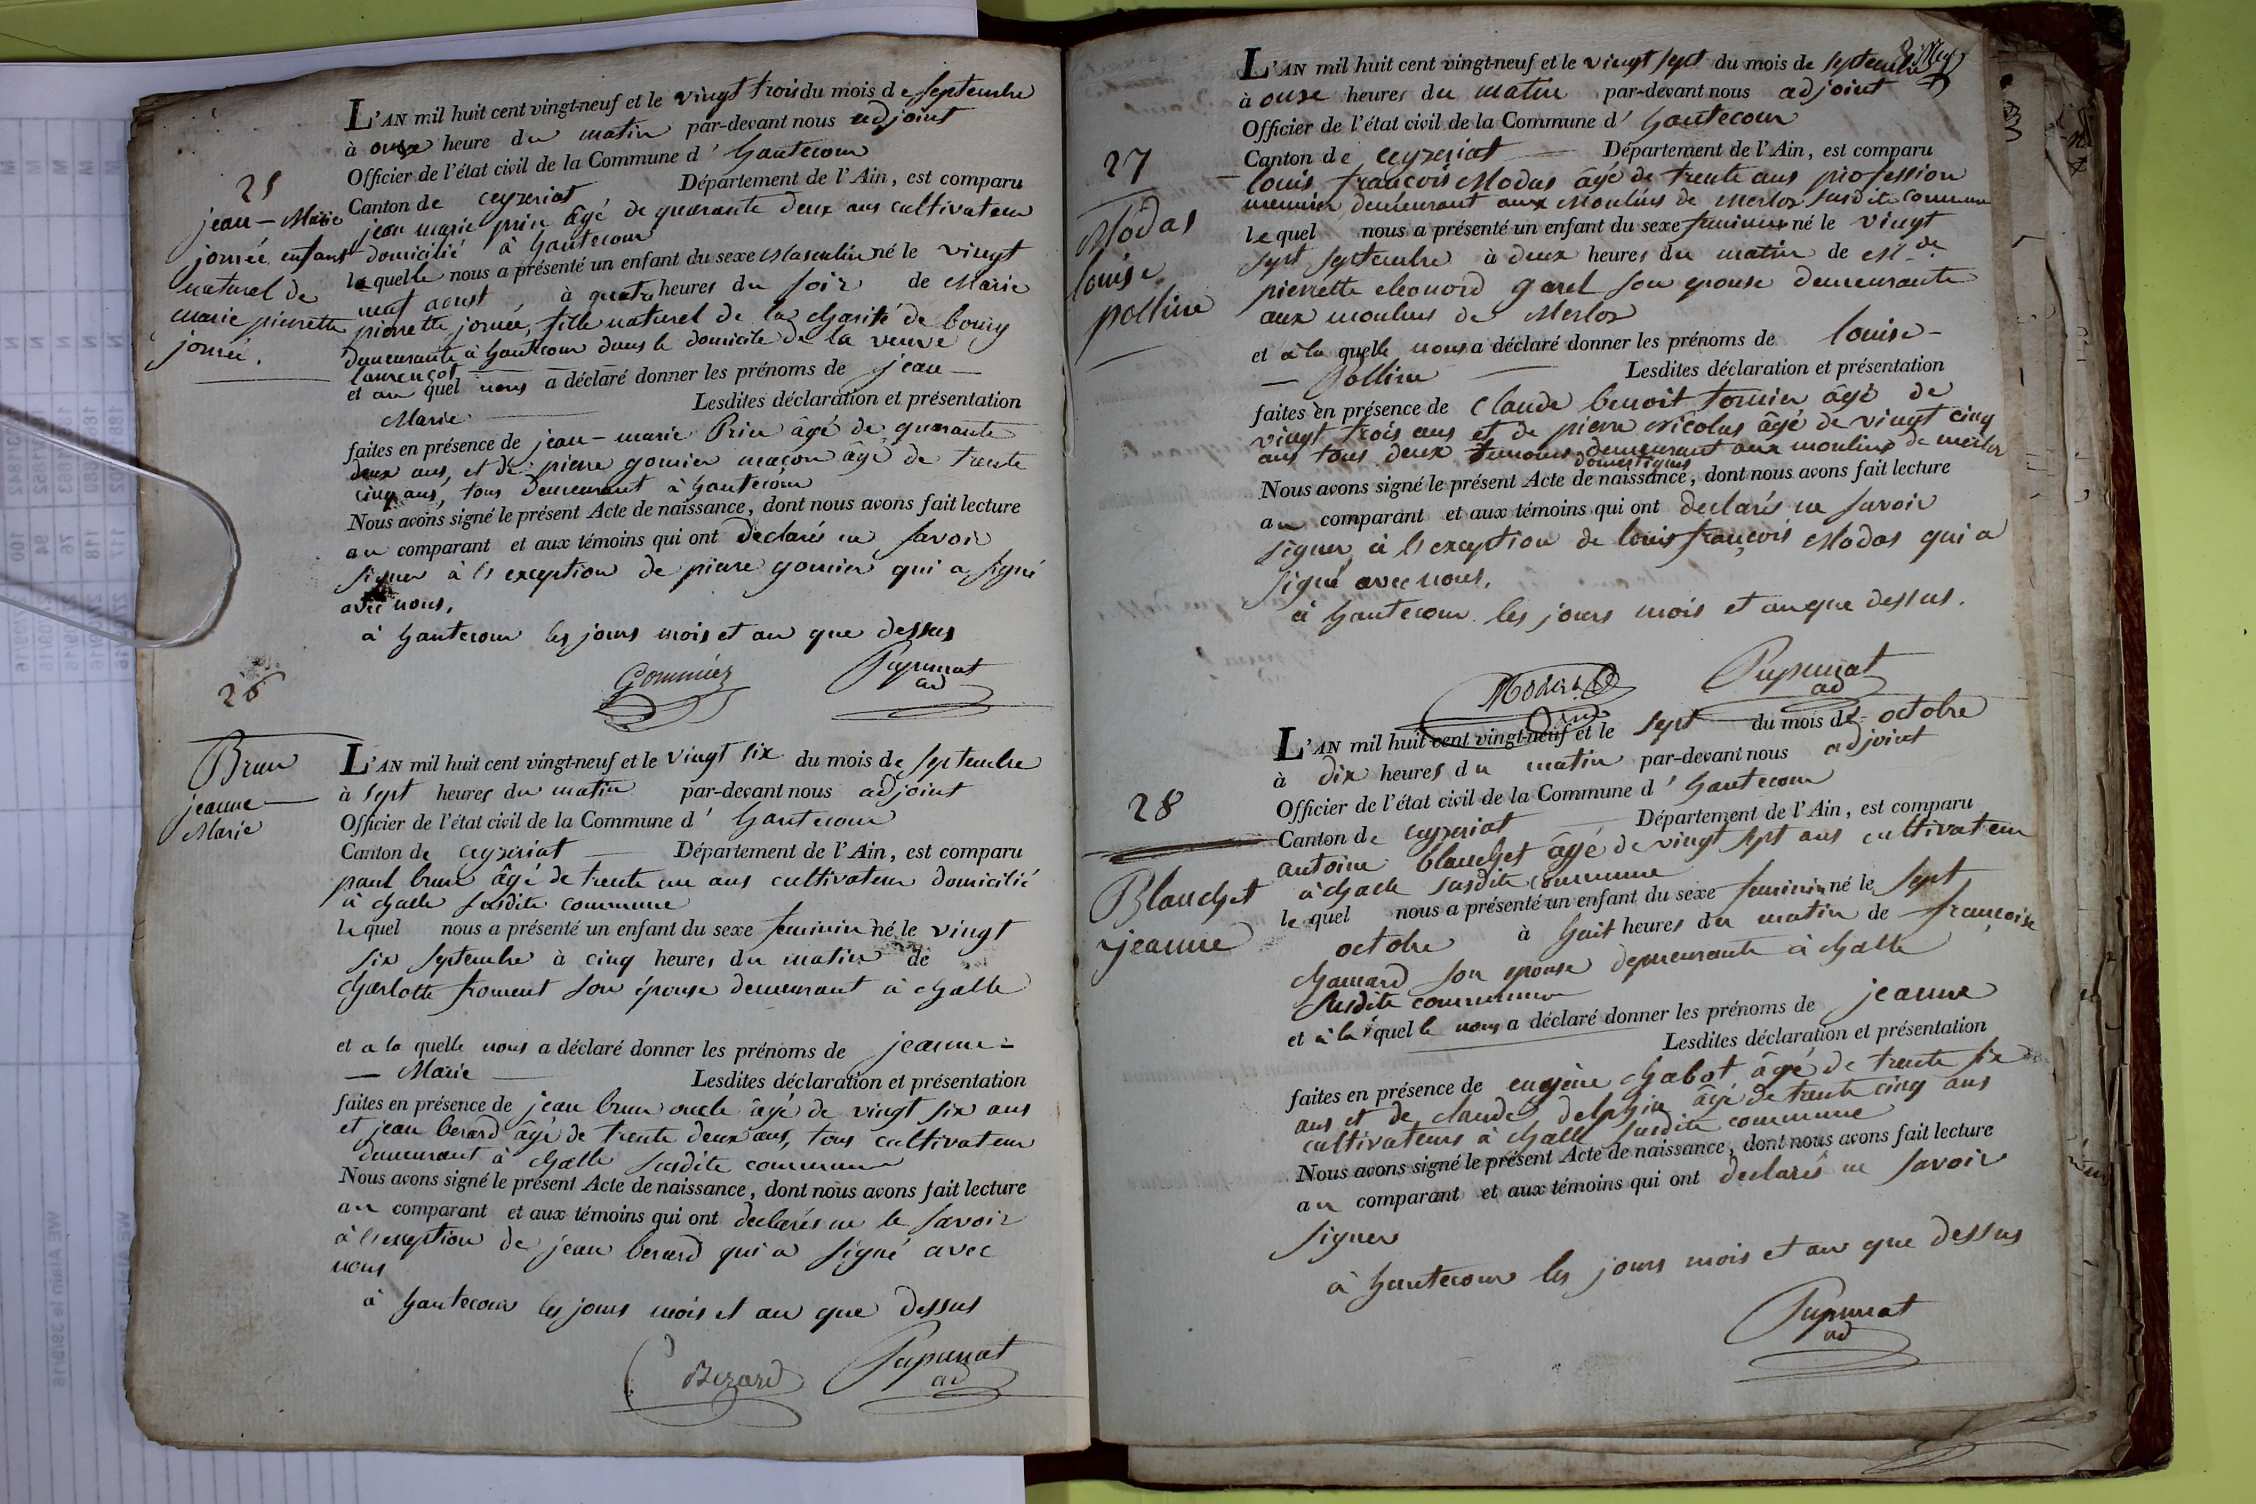 25
jean-Marie
jornée, enfant
naturel de
marie pierrette
jornée.
L'AN mil huit cent vingt-neuf et le vingt trois du mois de septembre
à onze heure du matin par-devant nous adjoint
Officier de l'état civil de la Commune d' hautecour
Canton de ceyzeriat Département de l'Ain, est comparu
jean marie prin âgé de quarante deux ans cultivateur
domicilié à hautecour
lequelle nous a présenté un enfant du sexe Masculin né le vingt
neuf aoust à quatre heures du soir de Marie
pierrette jornée, fille naturel de la charité de bourg
demeurante à hautecour dans le domicile de la veuve
laurençot
et au quel nous a déclaré donner les prénoms de jean-
Marie Lesdites déclaration et présentation
faites en présence de jean-marie Prin âgé de quarante
deux ans, et de pierre gomier maçon âgé de trente
cinq ans, tous demeurant à hautecour
Nous avons signé le présent Acte de naissance, dont nous avons fait lecture
au comparant et aux témoins qui ont déclarés ne savoir
signer à l'exception de pierre gomier qui a signé
avec nous.
à hautecour les jours mois et an que dessus
Gommier Papunat
ad
26
Brun
jeanne-
Marie
L'AN mil huit cent vingt-neuf et le vingt six du mois de septembre
à sept heures du matin par-devant nous adjoint
Officier de l'état civil de la Commune d' hautecour
Canton de ceyzeriat Département de l'Ain, est comparu
paul brun âgé de trente un ans cultivateur domicilié
à challe susdite commune
lequel nous a présenté un enfant du sexe feminin né le vingt
six septembre à cinq heures du matin de
charlotte froment son épouse demeurant à challe
et a la quelle nous a déclaré donner les prénoms de jeanne-
- Marie Lesdites déclaration et présentation
faites en présence de jean brun oncle âgé de vingt six ans
et jean berard âgé de trente deux ans, tous cultivateur
demeurant à challe susdite commune
Nous avons signé le présent Acte de naissance, dont nous avons fait lecture
au comparant et aux témoins qui ont declarés ne le savoir
à l'exception de jean berard qui a signé avec
nous
à hautecour les jours mois et an que dessus
Berard Papunat
ad
27
Modas
louise
polline
L'AN mil huit cent vingt-neuf et le vingt sept du mois de septembre
à onze heures du matin par-devant nous adjoint
Officier de l'état civil de la Commune d' hautecour
Canton de ceyzeriat Département de l'Ain, est comparu
louis françois Modas âgé de trente ans profession
meunier demeurant aux Moulins de Merloz susdite commune
lequel nous a présenté un enfant du sexe feminin né le vingt
sept septembre à deux heures du matin de
pierrette eleonord garel son epouse demeurante
aux moulins de Merloz
et à la quelle nous a déclaré donner les prénoms de louise-
- Polline Lesdites déclaration et présentation
faites en présence de claude benoit tornier âgé de
vingt trois ans et de pierre nicolas âgé de vingt cinq
ans tous deux temoins demeurant aux moulins de merloz
domestiques
Nous avons signé le présent Acte de naissance, dont nous avons fait lecture
au comparant et aux témoins qui ont declarés ne savoir
signer à l'exception de louis françois Modas qui a
signé avec nous.
à hautecour les jours mois et an que dessus.
Modas Papunat
ad
28
Blanchet
jeanne
L'AN mil huit cent vingt-neuf et le sept du mois de octobre
à dix heures du matin par-devant nous adjoint
Officier de l'état civil de la Commune d' hautecour
Canton de ceyzeriat Département de l'Ain, est comparu
antoine blanchet âgé de vingt sept ans cultivateur
à challe susdite commune
lequel nous a présenté un enfant du sexe feminin né le sept
octobre à huit heures du matin de françoise
chanard son epouse demeurante à challe
susdite commune
et à la quelle nous a déclaré donner les prénoms de jeanne
Lesdites déclaration et présentation
faites en présence de eugène chabot âgé de trente six
ans et de claude delphin âgé de trente cinq ans
cultivateurs à challe susdite commune
Nous avons signé le présent Acte de naissance, dont nous avons fait lecture
au comparant et aux témoins qui ont declarés ne savoir
signer
à hautecour les jours mois et an que dessus
Papunat
ad